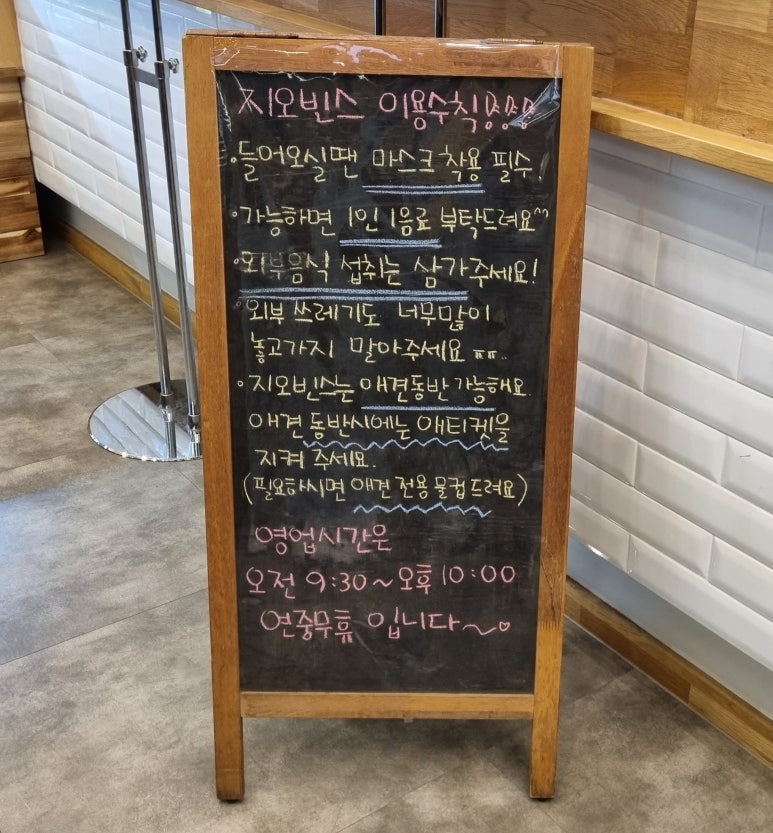 지오빈스 이용수칙
•들어오실땐 마스크 착용 필수!
•가능하면 1인 1음료 부탁드려요^^
•외부음식 섭취는 삼가주세요!
•외부 쓰레기도 너무많이
놓고가지 말아주세요 ㅠㅠ..
•지오빈스는 애견동반 가능해요.
애견 동반시에는 애티켓을
지켜 주세요.
(필요하시면 애견 전용 물컵 드려요)
영업시간은
오전 9:30~오후 10:00
연중무휴 입니다~♡